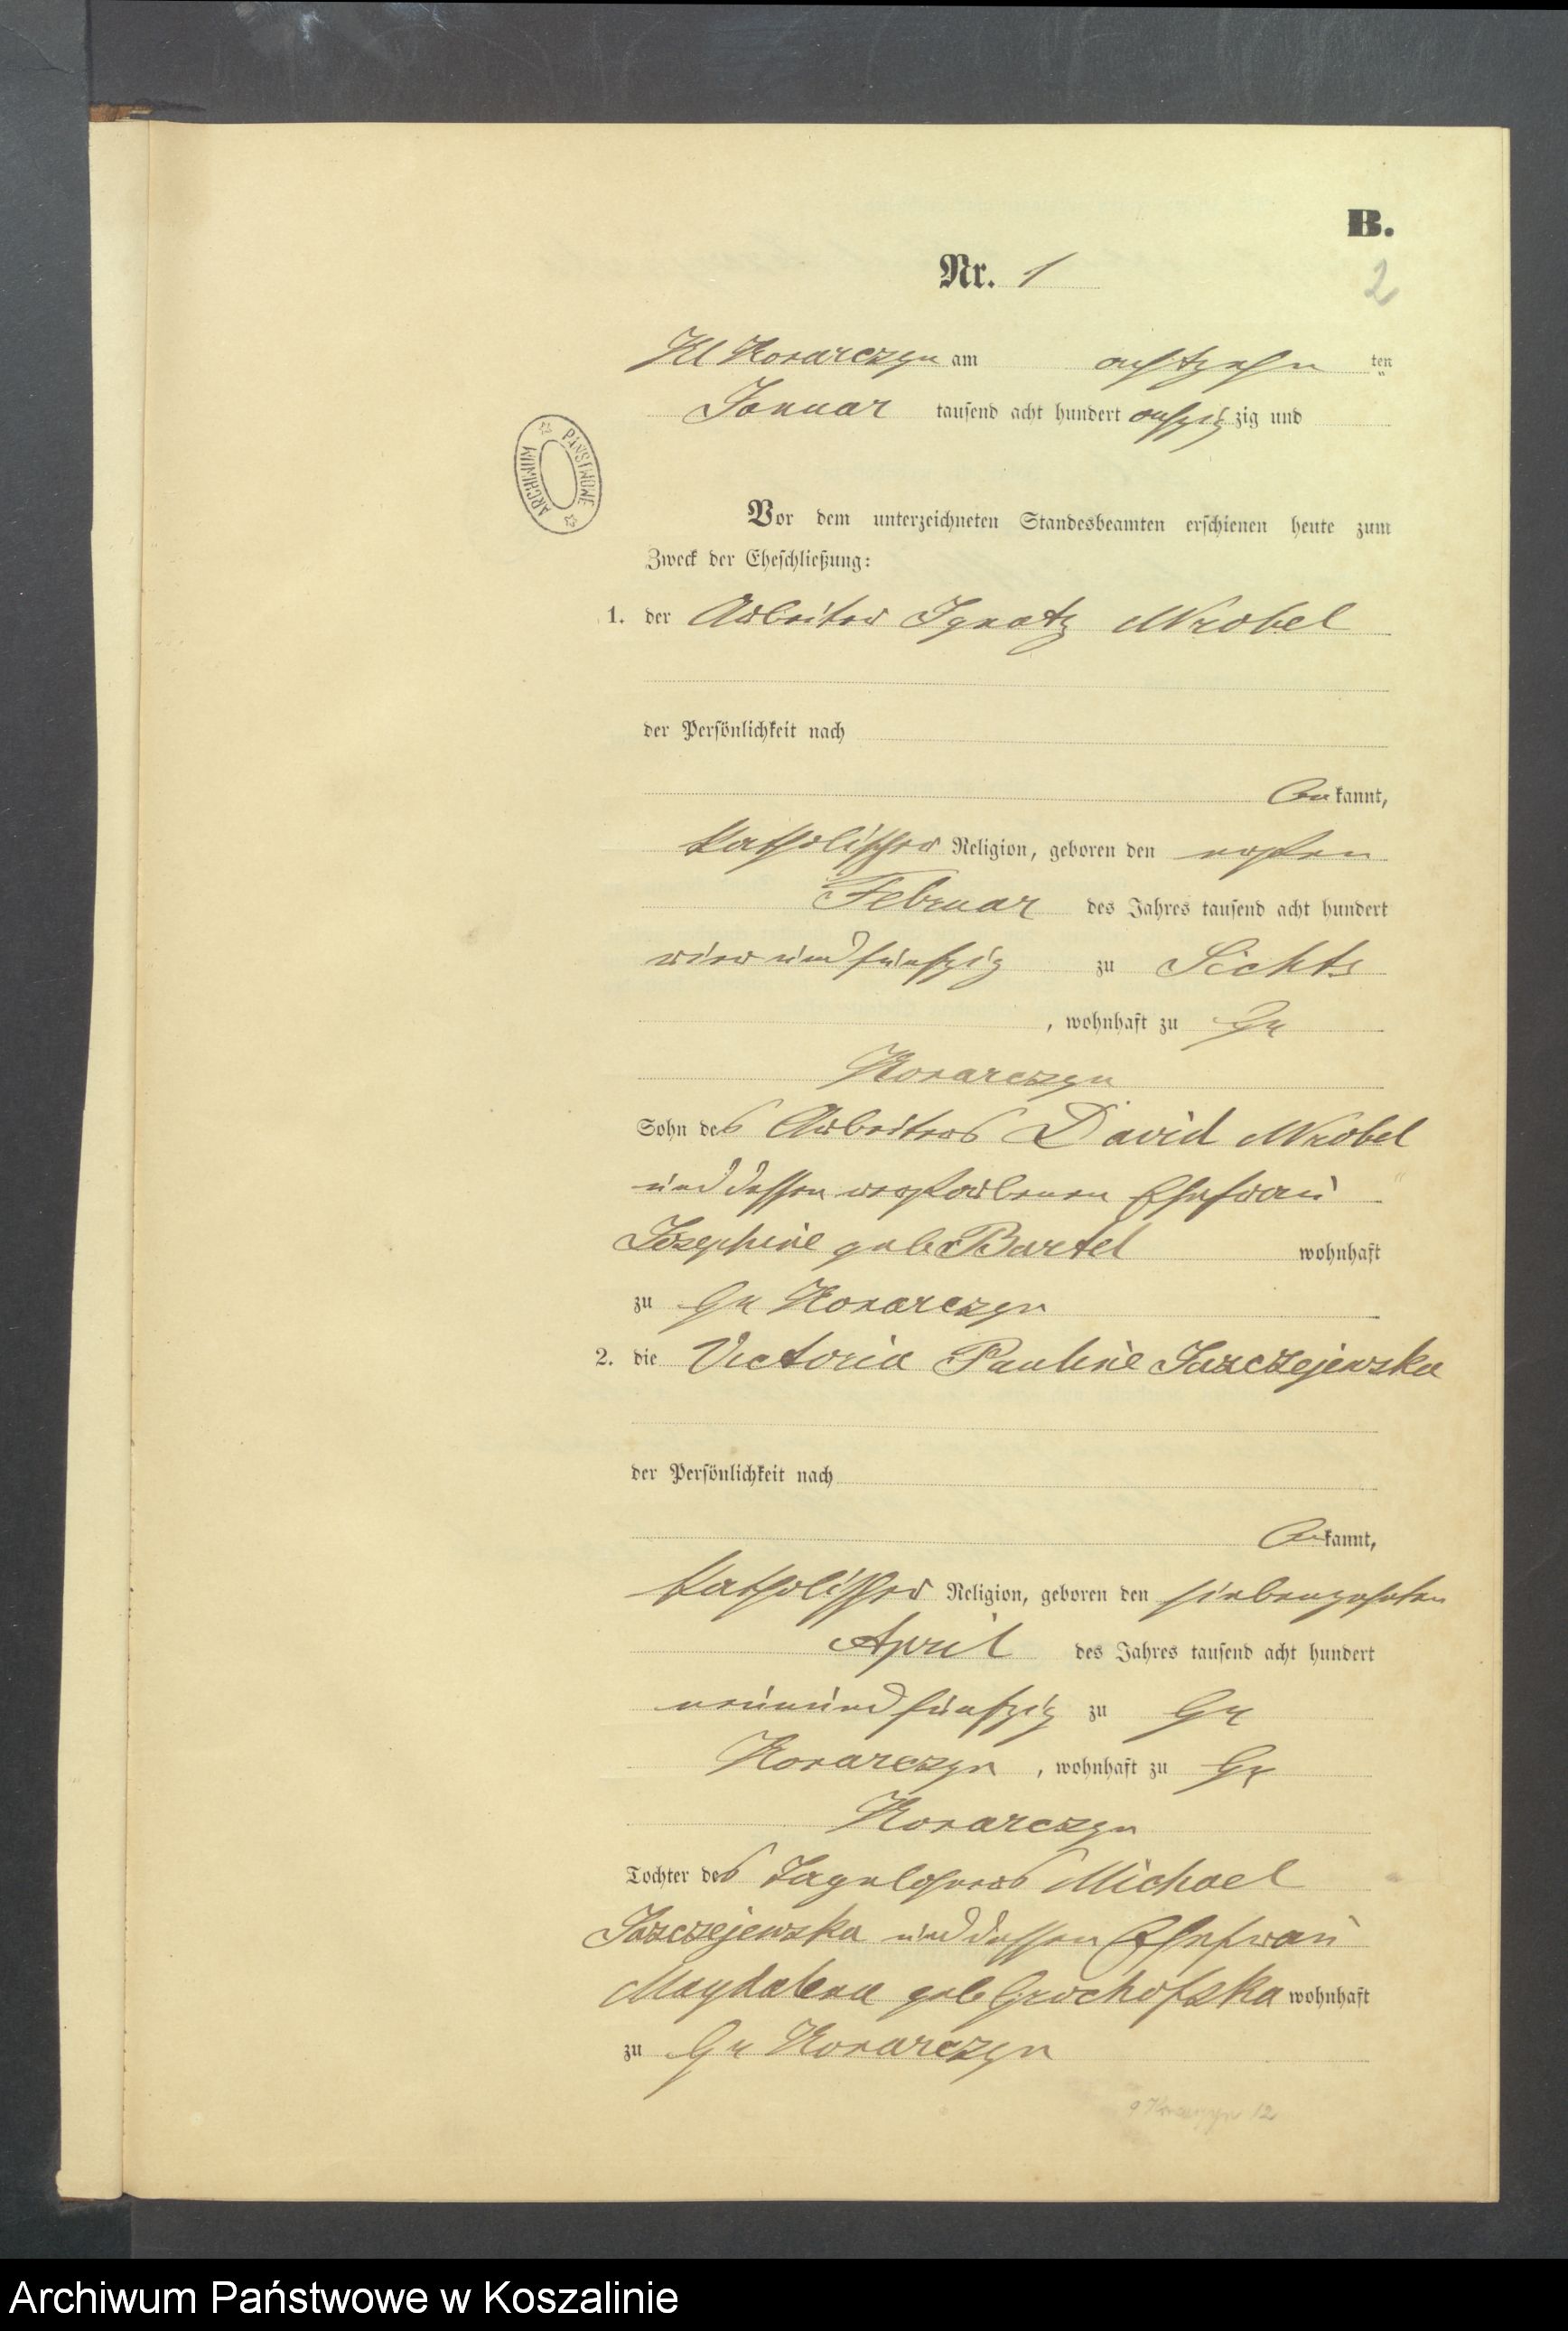 B.
Nr. 1
2
Kl Konarczyn am achtzehn ten
Januar tausend acht hundert achtzig zig und
ARCHIWUM PAŃSTWOWE
Vor dem unterzeichneten Standesbeamten erschienen heute zum
Zweck der Eheschließung:
1. der Arbeiter Ignatz Wrobel
der Persönlichkeit nach
be kannt,
katholischer Religion, geboren den ersten
Februar des Jahres tausend acht hundert
vier und fünfzig zu Lichts
, wohnhaft zu Gr
Konarczyn
Sohn des Arbeiters David Wrobel
und dessen verstorbenen Ehefrau
Josephine geb Bartel wohnhaft
zu Gr Konarczyn
2. die Victoria Pauline Jasczejewska
der Persönlichkeit nach
be kannt,
katholischer Religion, geboren den siebenzehnten
April des Jahres tausend acht hundert
neunundfünfzig zu Gr
Konarczyn , wohnhaft zu Gr
Konarczyn
Tochter des Tagelöhners Michael
Jasczejewska und dessen Ehefrau
Magdalena geb Grochofska wohnhaft
zu Gr Konarczyn
Archiwum Państwowe w Koszalinie